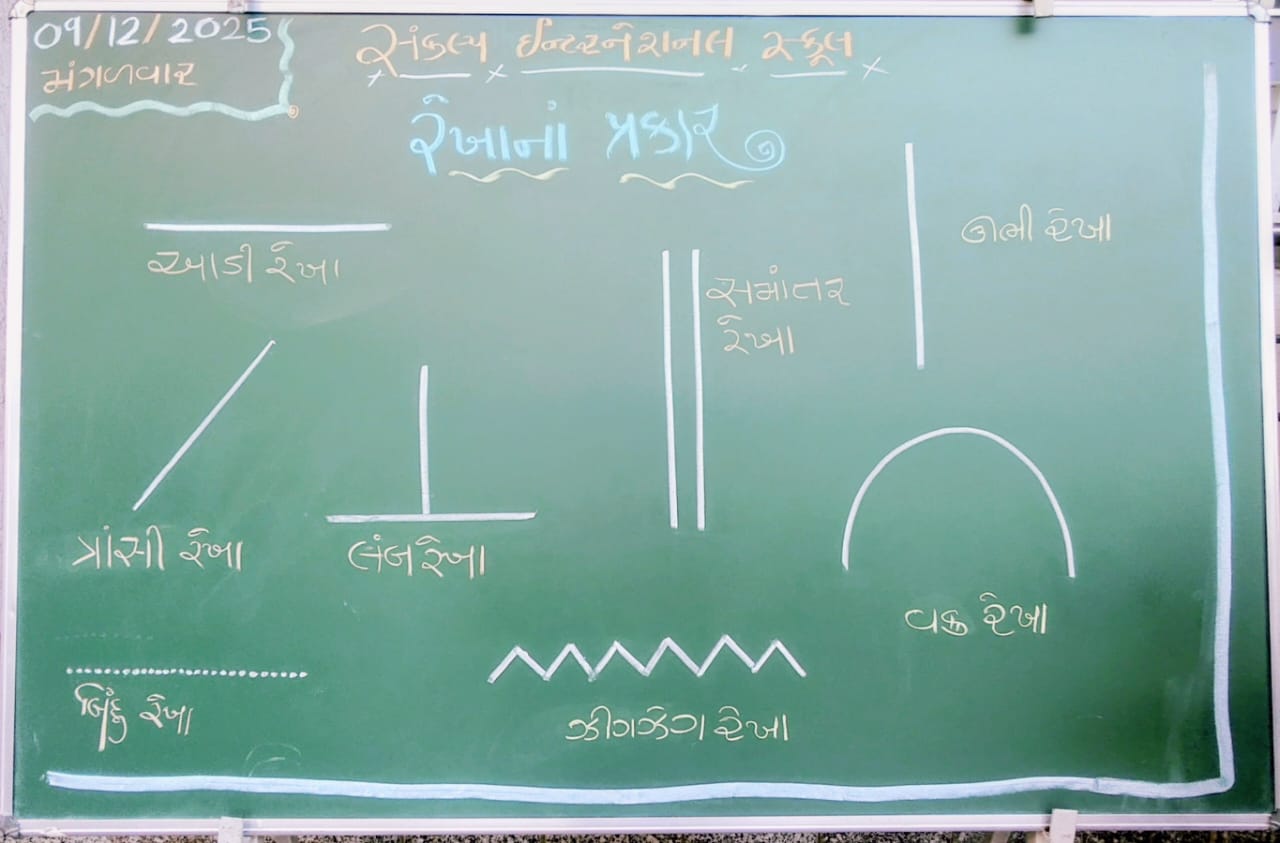 09/12/2025
મંગળવાર
સંકલ્પ ઈન્ટરનેશનલ સ્કૂલ
રેખાનાં પ્રકાર
આડી રેખા
સમાંતર
રેખા
ઊભી રેખા
ત્રાંસી રેખા
લંબ રેખા
વક્ર રેખા
બિંદુ રેખા
ઝીગઝેગ રેખા